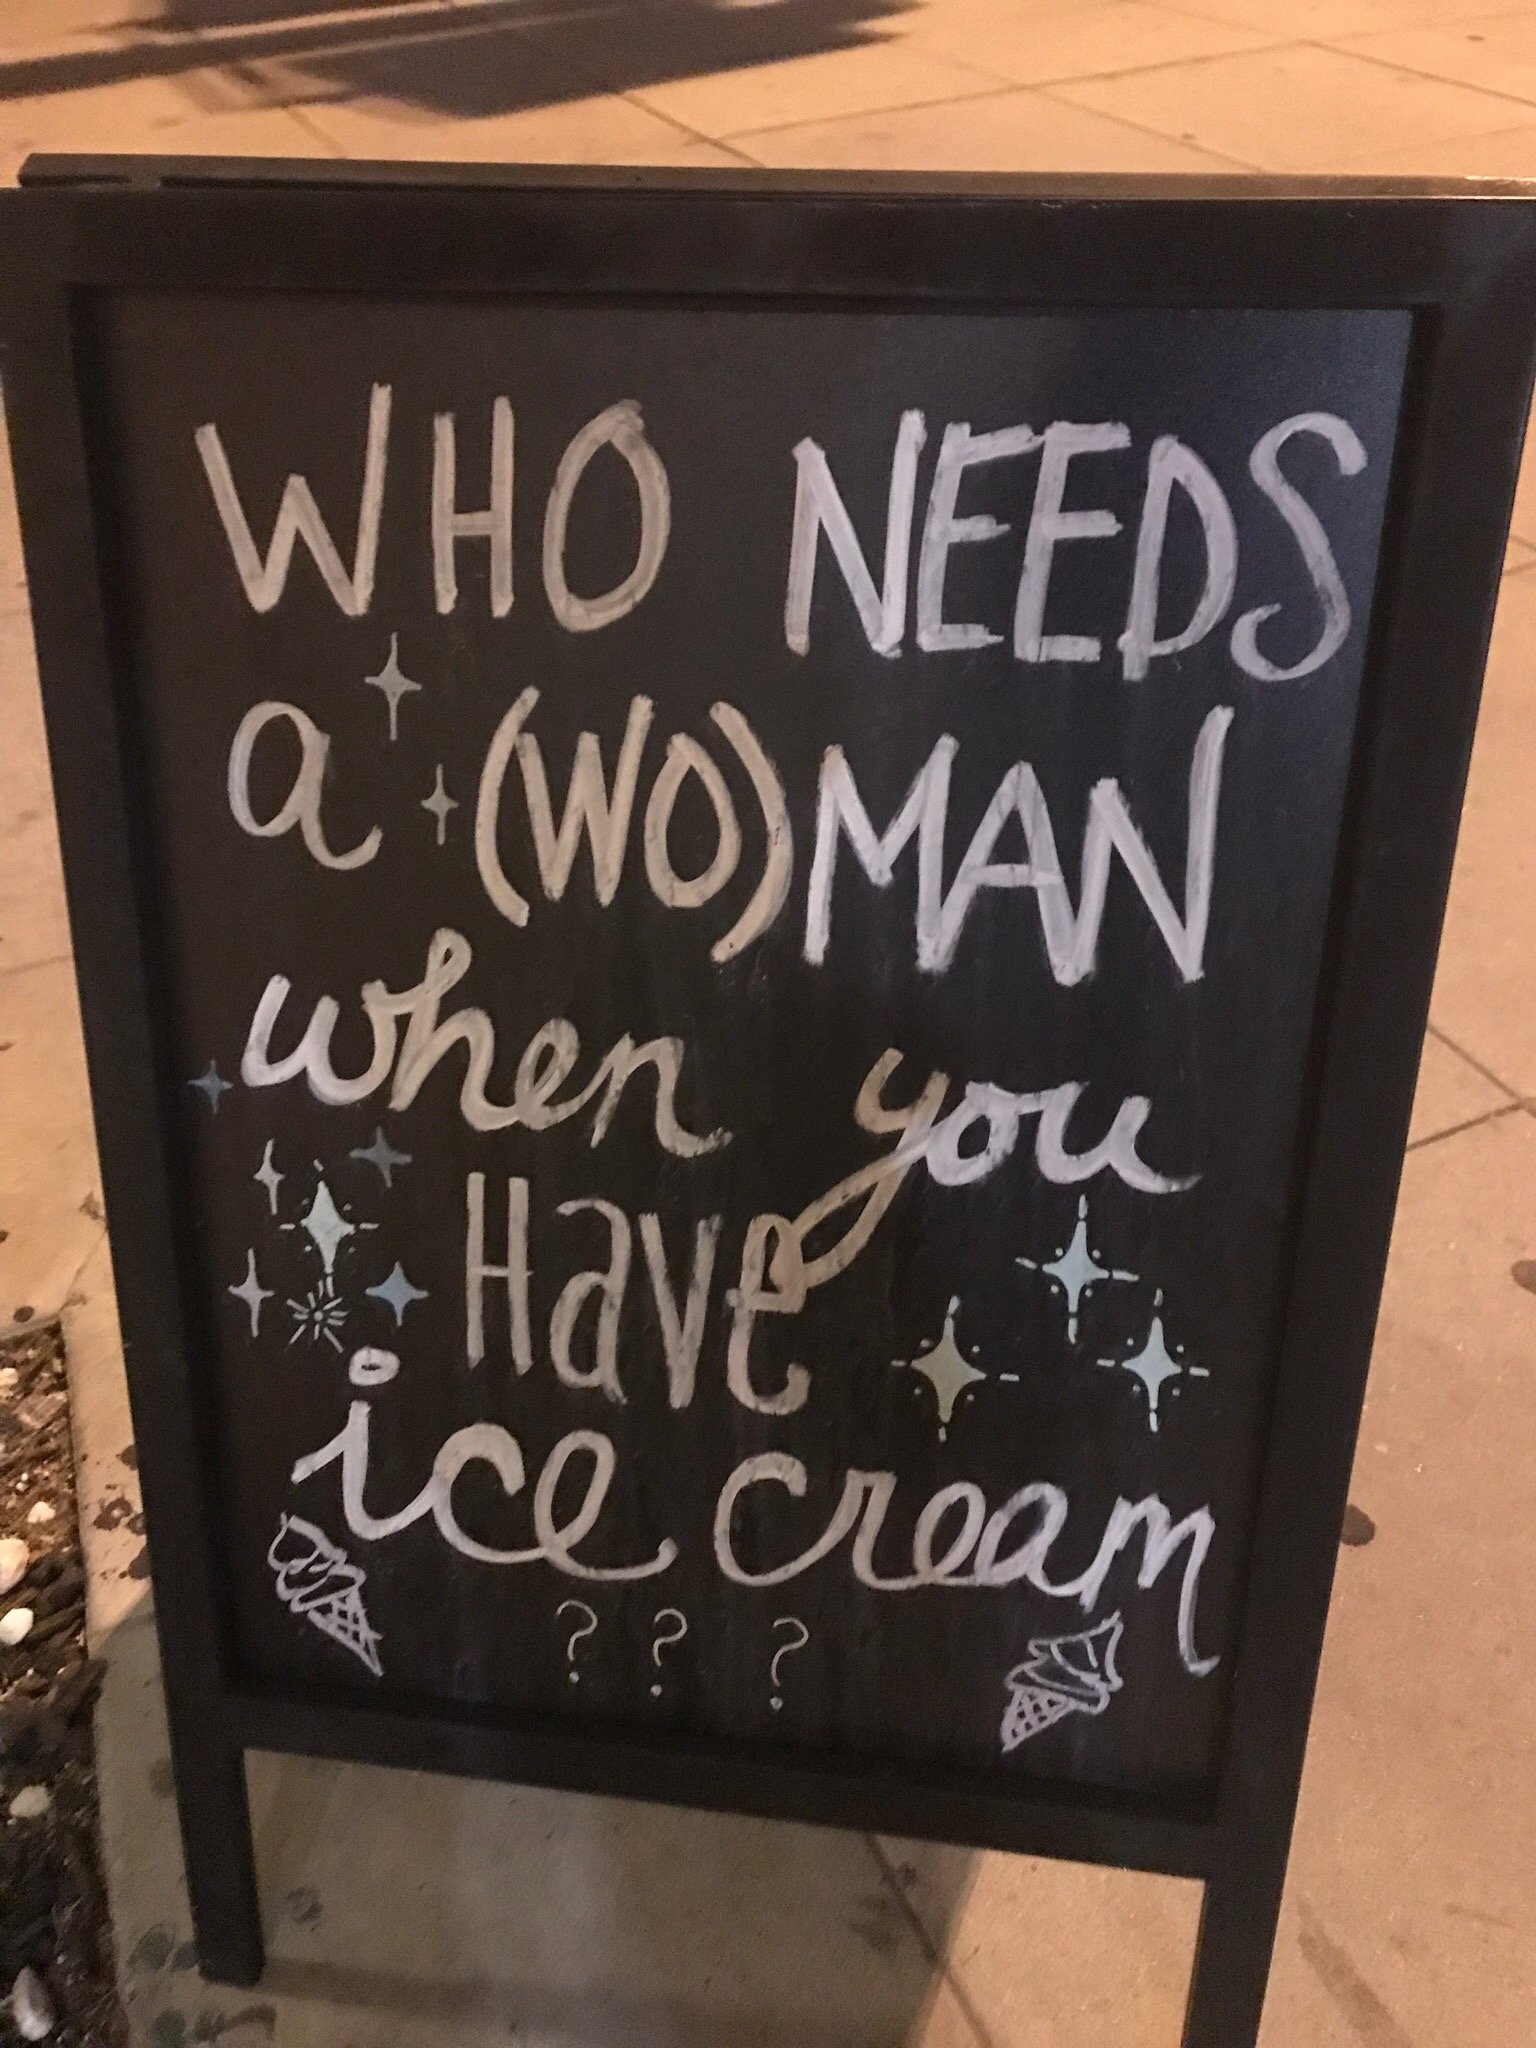 WHO NEEDS
a (WO)MAN
when you
Have
ice cream
? ? ?